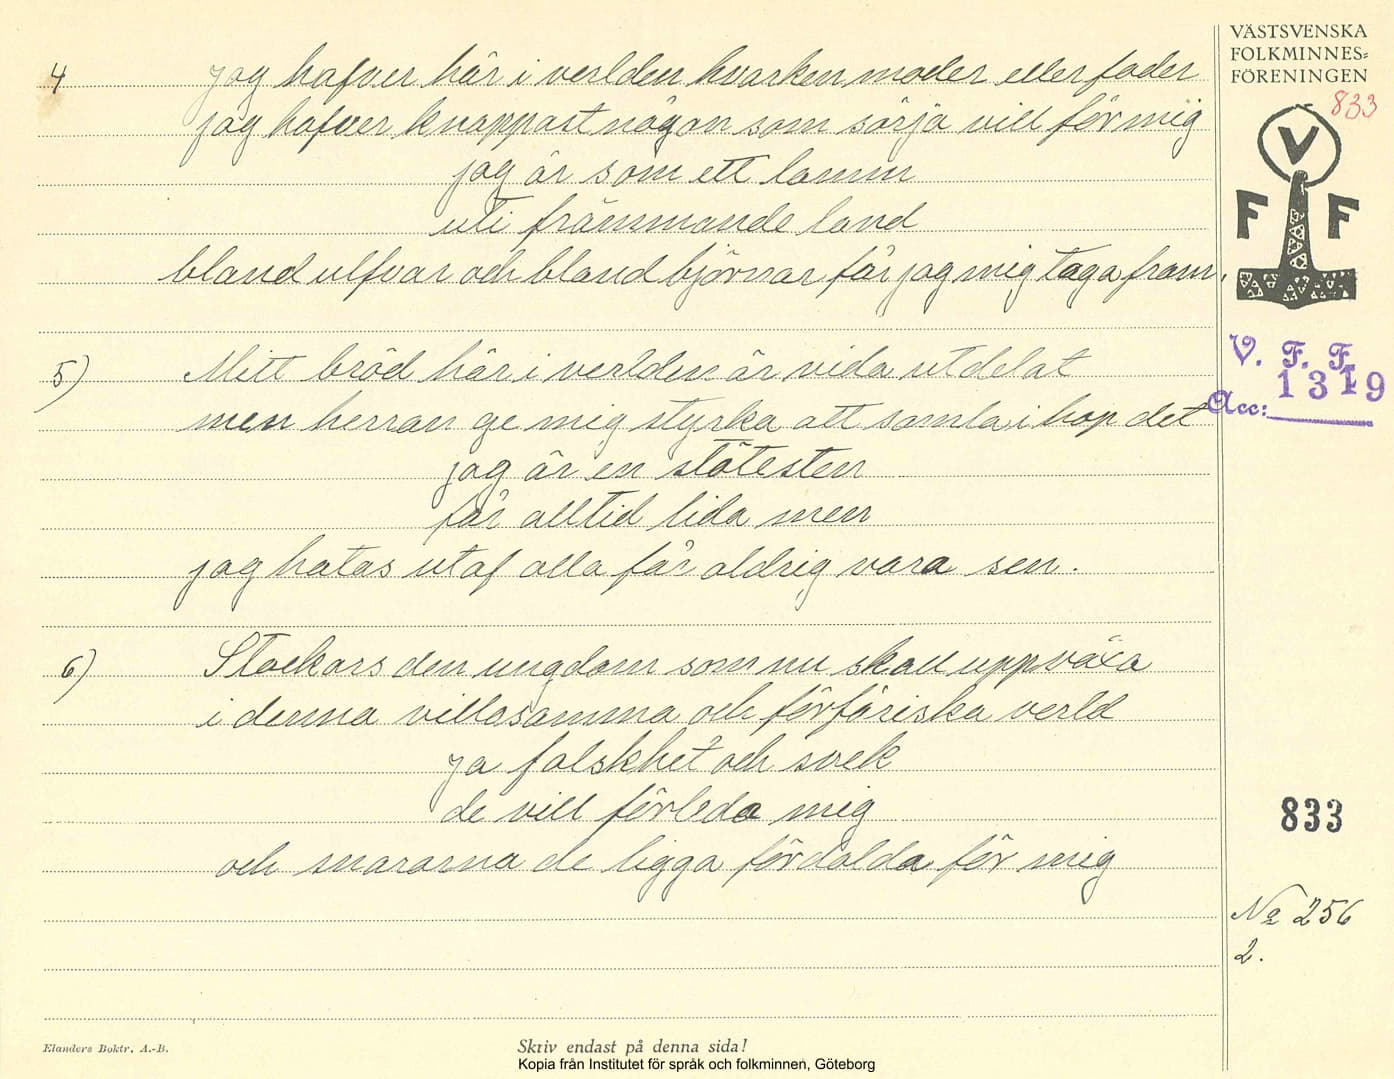 VÄSTSVENSKA
FOLKMINNES=
FÖRENINGEN
833
V
F F
V. F. F.
1319
Acc:
833
No 256
2.
4 jag hafver här i verlden hvarken moder eller fader
jag hafver knappast någon som sörja vill för mig
jag är som ett lamm
uti främmande land
bland ulfvar och bland björnar får jag mig taga fram.
5) Mitt bröd här i verlden är vida utdelat
men herran ge mig styrka att samla i hop det
jag är en stötesten
får alltid lida men
jag hatas utaf alla får aldrig vara sen.
6) Stackars den ungdom som nu skall uppväxa
i denna villosamma och förföriska verld
ja falskhet och svek
de vill förleda mig
och snararna de ligga fördolda för mig
Elanders Boktr. A.-B.
Skriv endast på denna sida!
Kopia från Institutet för språk och folkminnen, Göteborg